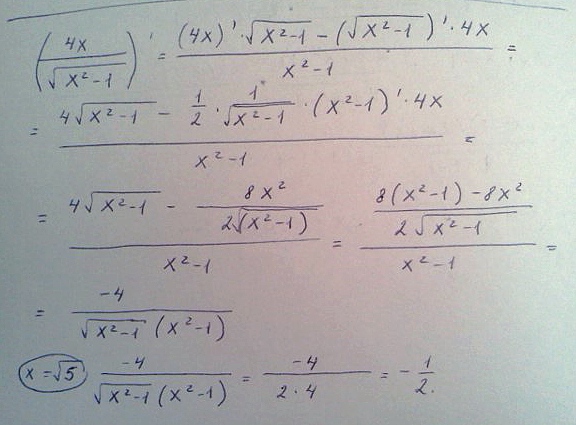 (4x / √(x²-1))' = ((4x)'·√(x²-1) - (√(x²-1))'·4x) / (x²-1) =
= (4√(x²-1) - 1/2 · 1/√(x²-1) · (x²-1)'·4x) / (x²-1) =
= (4√(x²-1) - 8x² / (2√(x²-1))) / (x²-1) = ((8(x²-1) - 8x²) / (2√(x²-1))) / (x²-1) =
= -4 / (√(x²-1) (x²-1))
x=√5 -4 / (√(x²-1) (x²-1)) = -4 / (2·4) = -1/2.